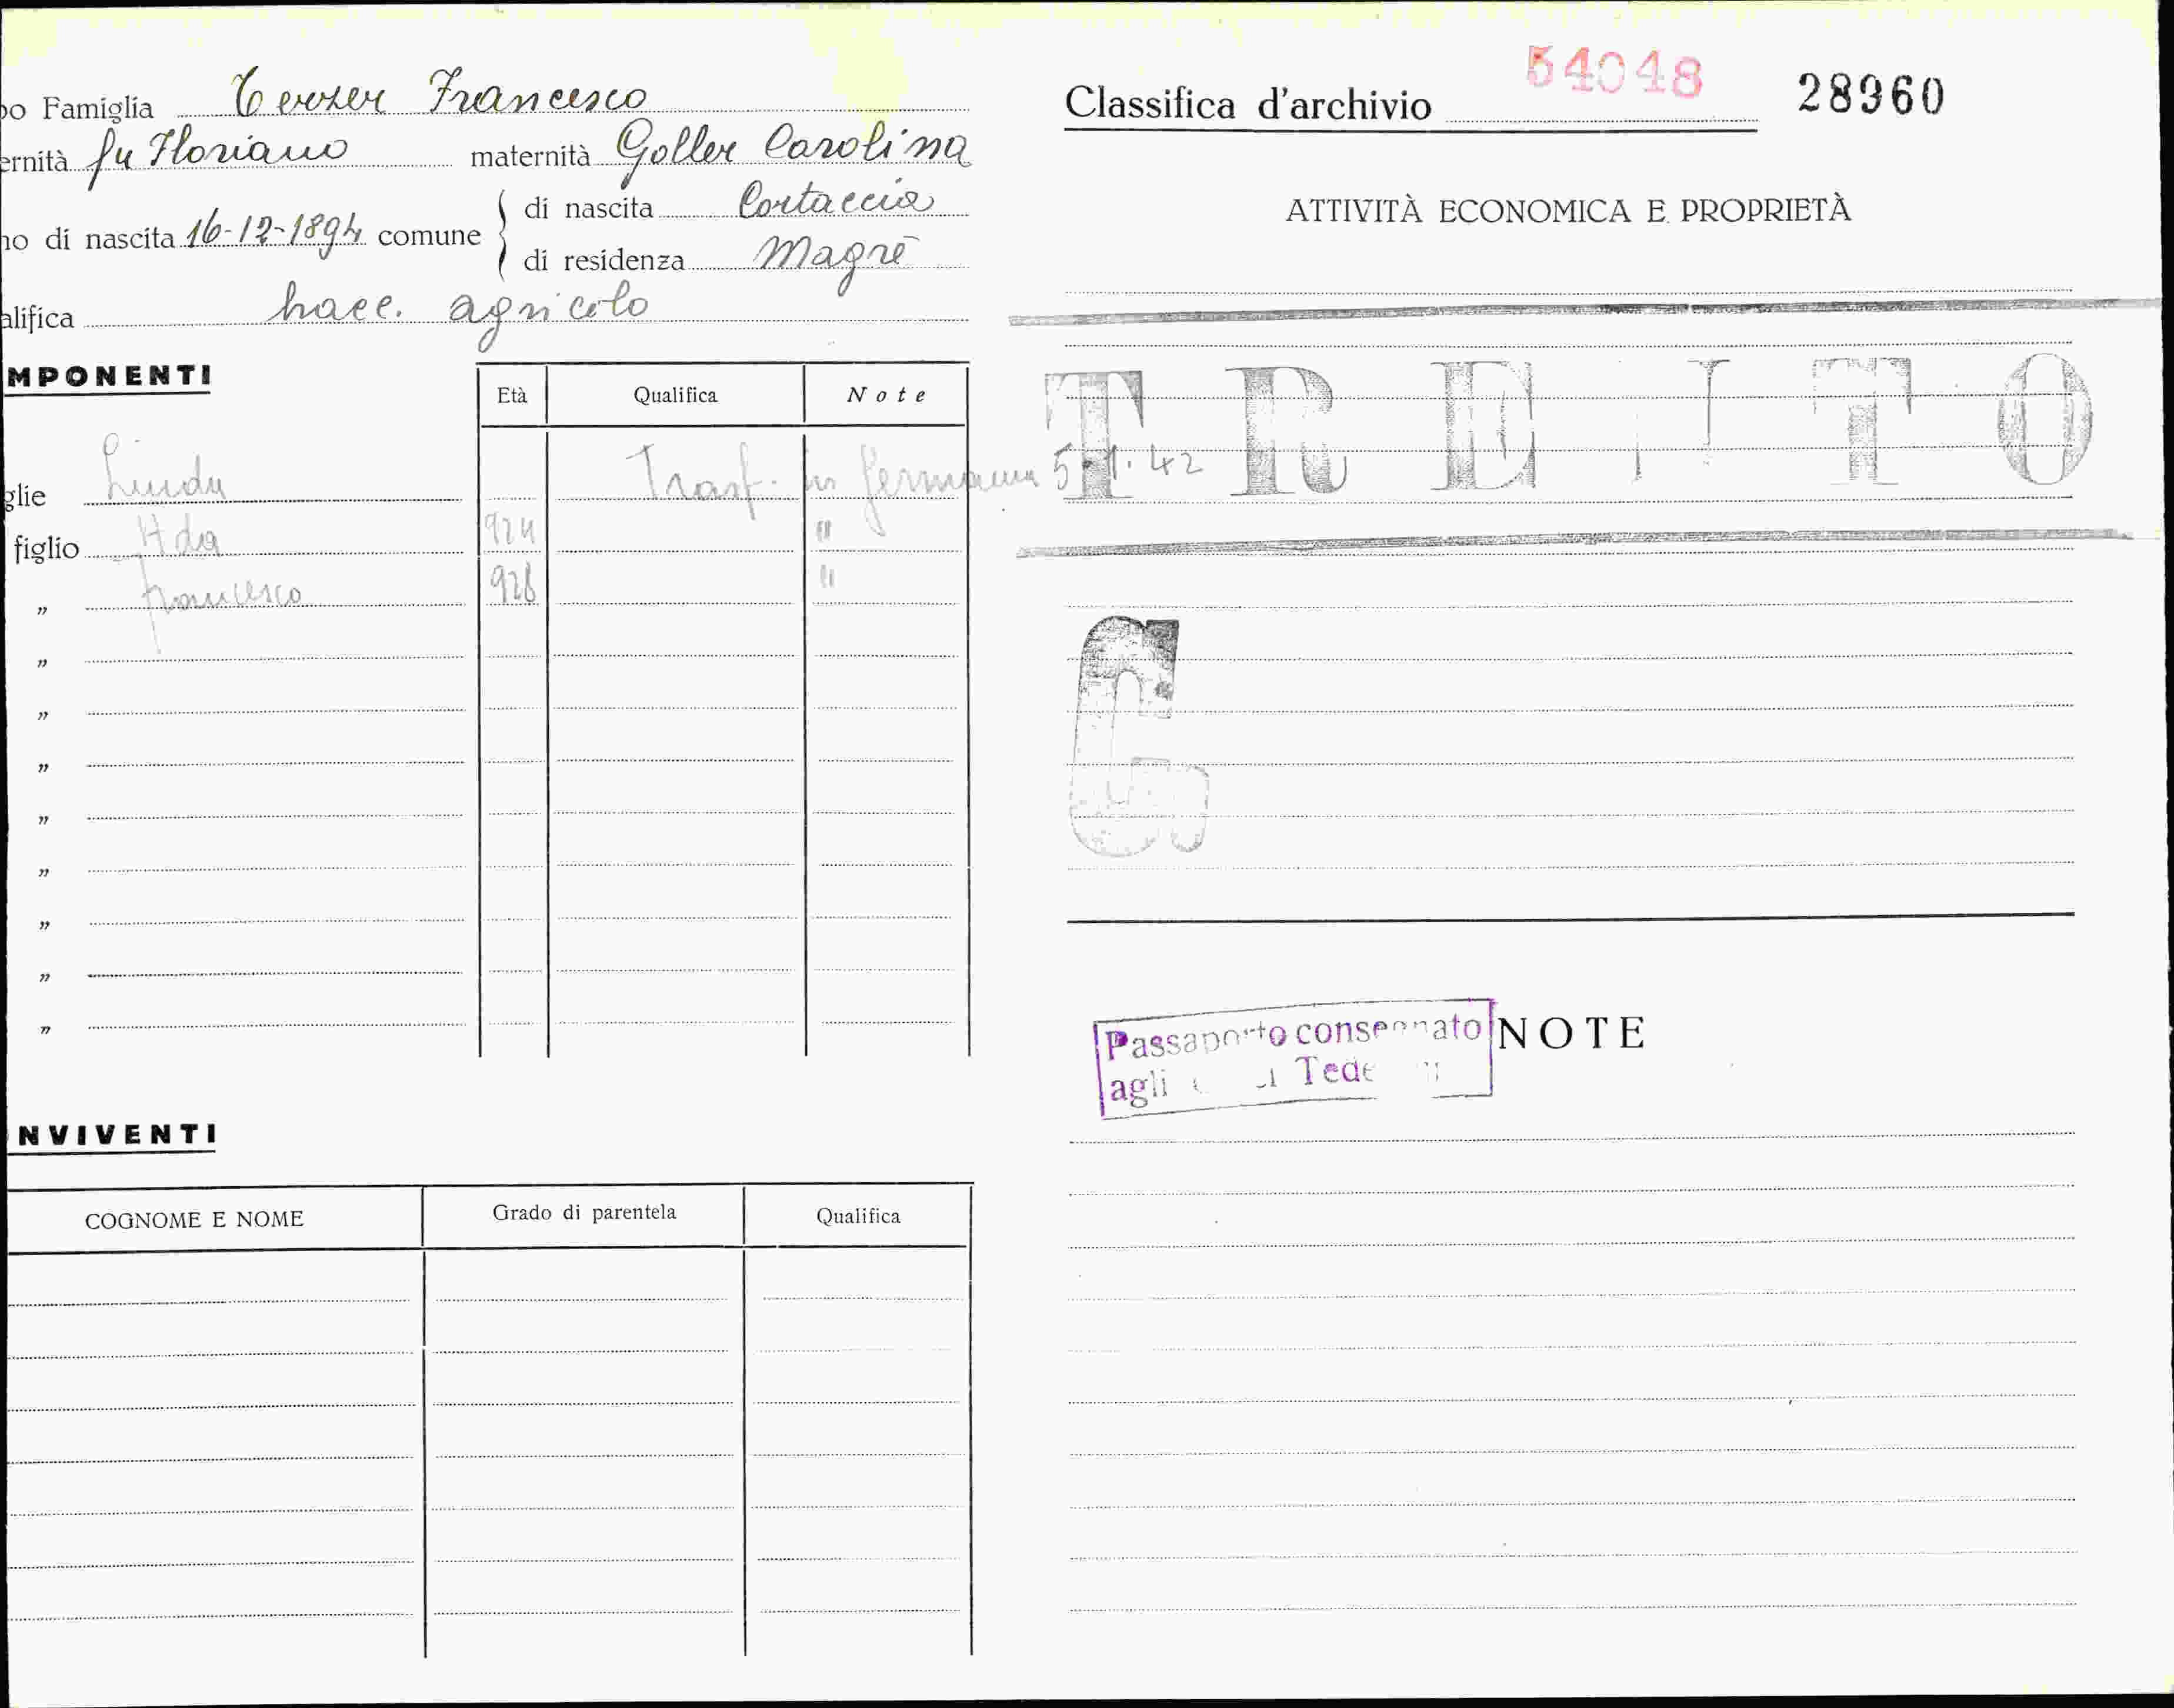 po Famiglia Terzer Francesco
ernità fu Floriano maternità Goller Carolina
no di nascita 16-12-1894 comune di nascita Cortaccia
di residenza Magrè
alifica bracc. agricolo
MPONENTI
Età Qualifica Note
glie Linda Trasf. in Germania 5-1-42
figlio Ada 924 "
" Francesco 928 "
"
"
"
"
"
"
"
"
NVIVENTI
COGNOME E NOME Grado di parentela Qualifica
Classifica d'archivio 54048 28960
ATTIVITÀ ECONOMICA E PROPRIETÀ
TRENTO
G
Passaporto consegnato
agli Tede
NOTE